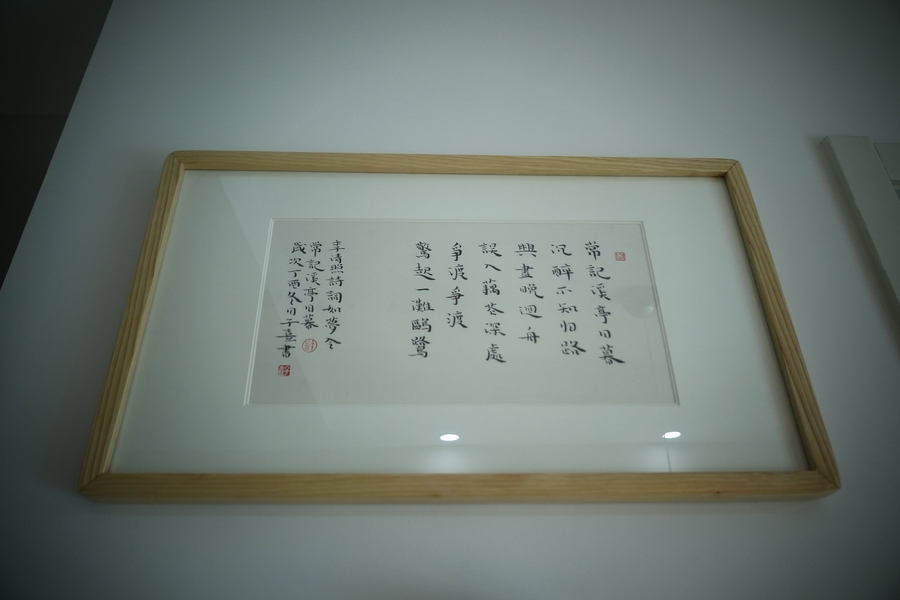 常記溪亭日暮
沉醉不知归路
興盡晚迴舟
誤入藕花深處
爭渡爭渡
驚起一灘鷗鷺
李清照詩詞如夢令
常記溪亭日暮
歲次丁酉冬日子熹書